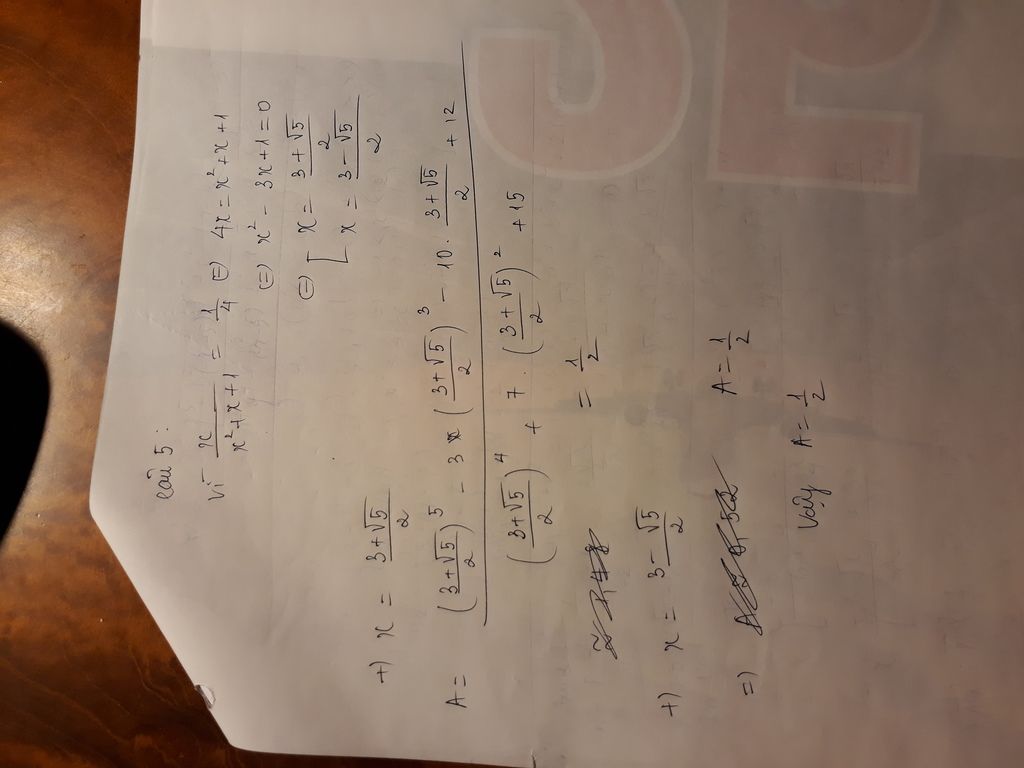 câu 5:
Vì \frac{x}{x^2+x+1} = \frac{1}{4} (=) 4x = x^2+x+1
(=) x^2 - 3x + 1 = 0
(=) [ x = \frac{3+\sqrt{5}}{2}
x = \frac{3-\sqrt{5}}{2}
+) x = \frac{3+\sqrt{5}}{2}
A = \frac{(\frac{3+\sqrt{5}}{2})^5 - 3 x (\frac{3+\sqrt{5}}{2})^3 - 10 . \frac{3+\sqrt{5}}{2} + 12}{(\frac{3+\sqrt{5}}{2})^4 + 7 . (\frac{3+\sqrt{5}}{2})^2 + 15}
= \frac{1}{2}
+) x = \frac{3-\sqrt{5}}{2}
=) A = \frac{1}{2}
Vậy A = \frac{1}{2}